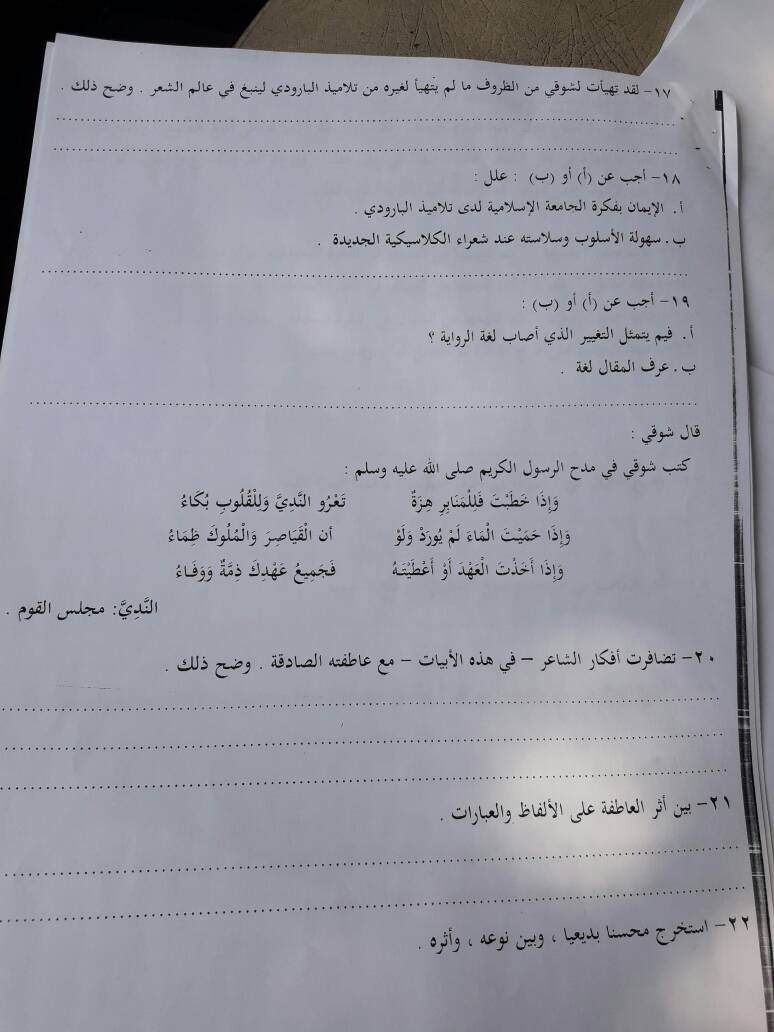 ١٧- لقد تهيأت لشوقي من الظروف ما لم يتهيأ لغيره من تلاميذ البارودي لينبغ في عالم الشعر . وضح ذلك .
١٨- أجب عن (أ) أو (ب) : علل :
أ. الإيمان بفكرة الجامعة الإسلامية لدى تلاميذ البارودي .
ب. سهولة الأسلوب وسلاسته عند شعراء الكلاسيكية الجديدة .
١٩- أجب عن (أ) أو (ب) :
أ. فيم يتمثل التغيير الذي أصاب لغة الرواية ؟
ب. عرف المقال لغة .
قال شوقي :
كتب شوقي في مدح الرسول الكريم صلى الله عليه وسلم :
وَإِذَا خَطَبْتَ فَلِلْمَنَابِرِ هِزَةٌ تَعْرُو النَّدِيَّ وَلِلْقُلُوبِ بُكَاءُ
وَإِذَا حَمَيْتَ الْمَاءَ لَمْ يُورَدْ وَلَوْ أن الْقَيَاصِرَ وَالْمُلُوكَ ظِمَاءُ
وَإِذَا أَخَذْتَ الْعَهْدَ أَوْ أَعْطَيْتَهُ فَجَمِيعُ عَهْدِكَ ذِمَّةٌ وَوَفَاءُ
النَّدِيَّ: مجلس القوم .
٢٠- تضافرت أفكار الشاعر – في هذه الأبيات – مع عاطفته الصادقة . وضح ذلك .
٢١- بين أثر العاطفة على الألفاظ والعبارات .
٢٢- استخرج محسنا بديعيا ، وبين نوعه ، وأثره .